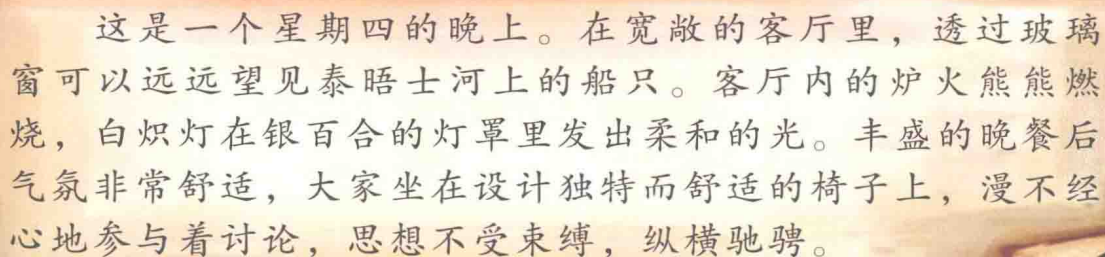 这是一个星期四的晚上。在宽敞的客厅里，透过玻璃
窗可以远远望见泰晤士河上的船只。客厅内的炉火熊熊燃
烧，白炽灯在银百合的灯罩里发出柔和的光。丰盛的晚餐后
气氛非常舒适，大家坐在设计独特而舒适的椅子上，漫不经
心地参与着讨论，思想不受束缚，纵横驰骋。